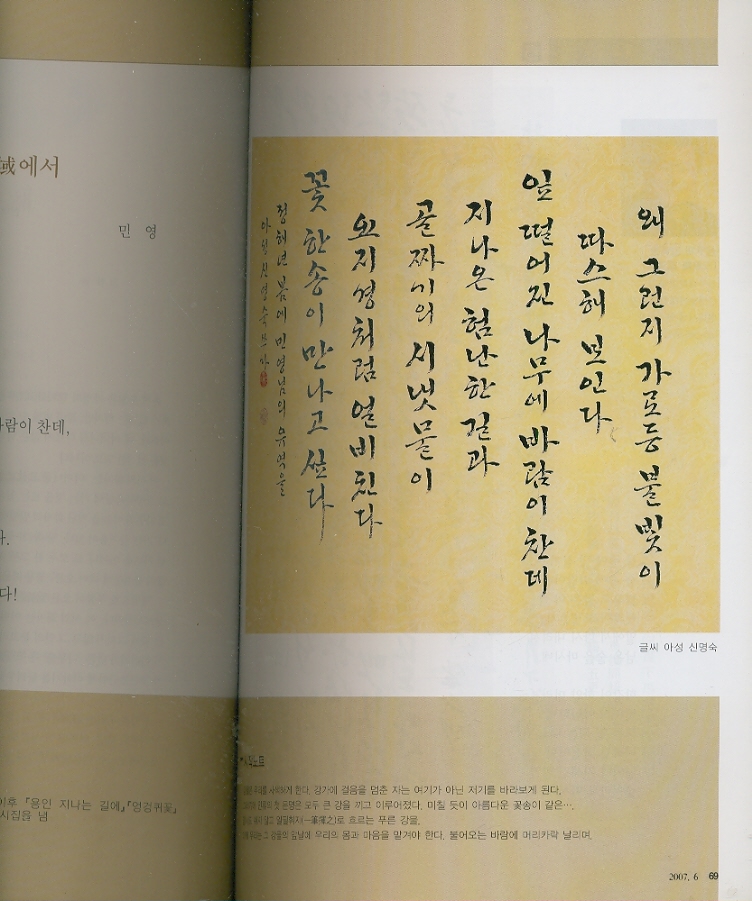 域에서
민 영
람이 찬데,
다.
다!
이후 『용인 지나는 길에』 『엉겅퀴꽃』
시집을 냄
왜 그런지 가로등 불빛이
따스해 보인다
잎 떨어진 나무에 바람이 찬데
지나온 험난한 길과
골짜기의 시냇물이
요지경처럼 얼비친다
꽃 한송이 만나고 싶다
정해년 봄에 민영님의 유역을
아성 신명숙 쓰다
글씨 아성 신명숙
하게 한다. 강가에 걸음을 멈춘 자는 여기가 아닌 저기를 바라보게 된다.
첫 문명은 모두 큰 강을 끼고 이루어졌다. 미칠 듯이 아름다운 꽃송이 같은….
일필휘지(一筆揮之)로 흐르는 푸른 강물.
그 강물의 앞날에 우리의 몸과 마음을 맡겨야 한다. 불어오는 바람에 머리카락 날리며.
2007. 6 69